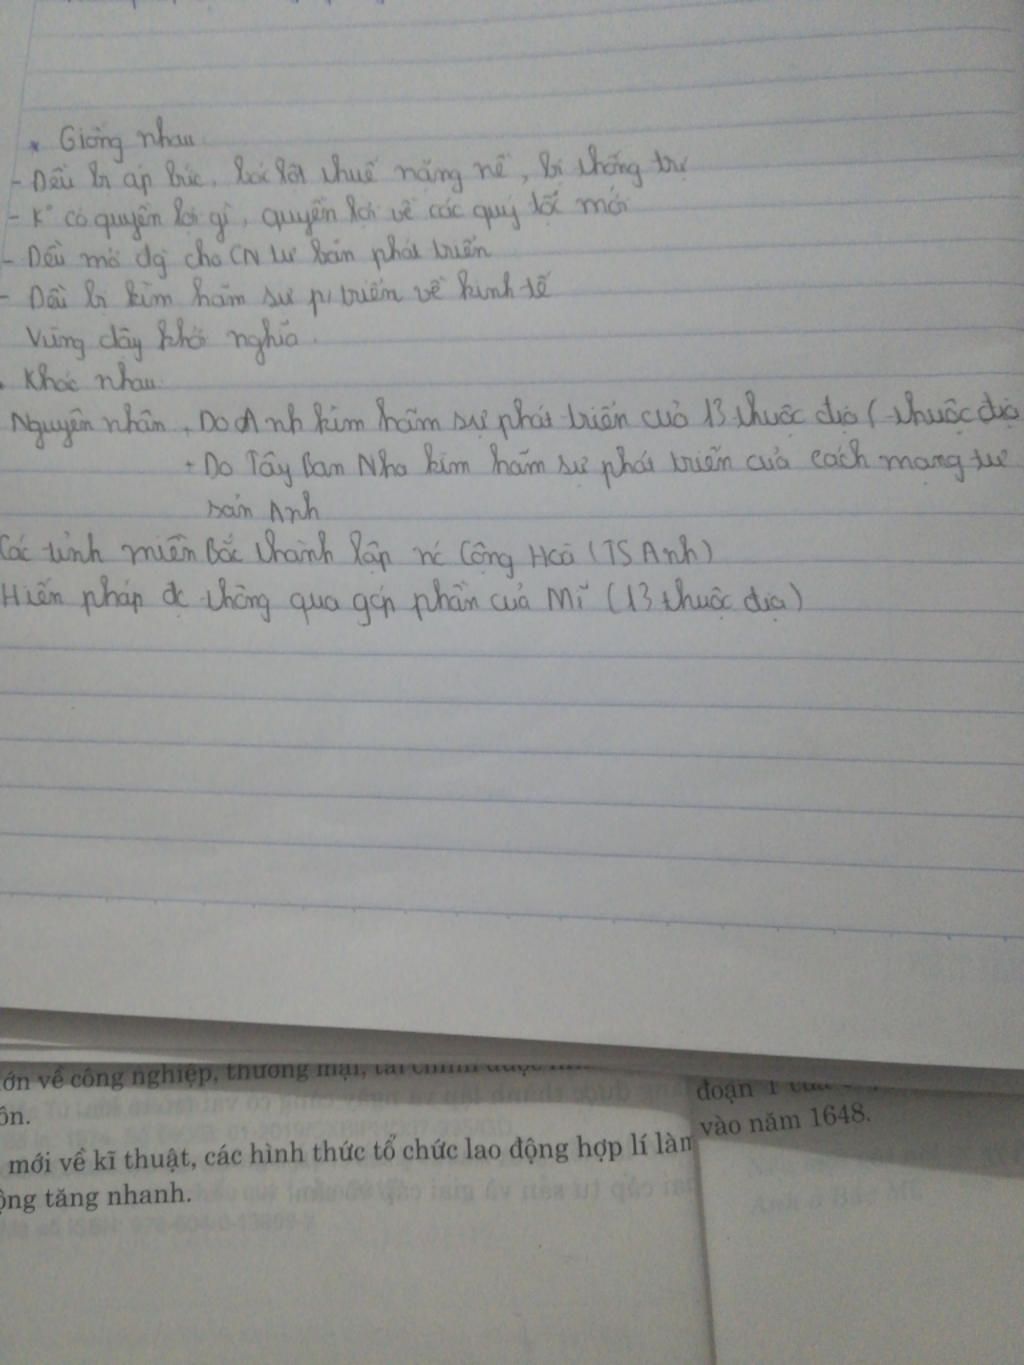 * Giống nhau
- Đều bị áp bức, bóc lột thuế nặng nề, bị thống trị
- K° có quyền lợi gì, quyền lợi về các quý tộc mới
- Đều mở đg cho CN tư bản phát triển
- Đều bị kìm hãm sự p/triển về kinh tế
Vùng dậy khởi nghĩa.
Khác nhau
Nguyên nhân + Do Anh kìm hãm sự phát triển của 13 thuộc địa (thuộc địa
+ Do Tây Ban Nha kìm hãm sự phát triển của cách mạng tư
sản Anh
Các tỉnh miền Bắc thành lập nc Cộng Hoà (TS Anh)
Hiến pháp đc thông qua góp phần của Mĩ (13 thuộc địa)
ớn về công nghiệp, thương mại, tài chính được
ôn.
mới về kĩ thuật, các hình thức tổ chức lao động hợp lí làn
ộng tăng nhanh.
đoạn 1 của
vào năm 1648.